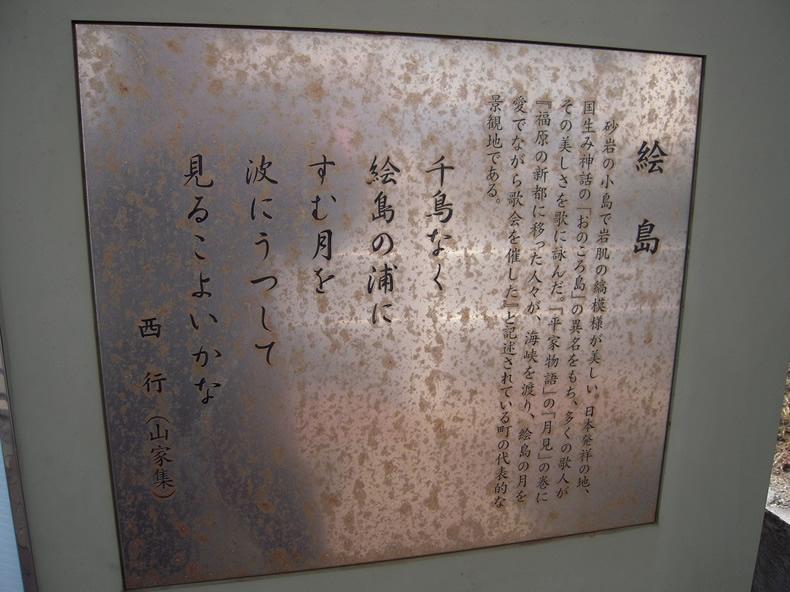 絵島
砂岩の小島で岩肌の縞模様が美しい。日本発祥の地、
国生み神話の「おのころ島」の異名をもち、多くの歌人が
その美しさを歌に詠んだ。『平家物語』の「月見」の巻に
『福原の新都に移った人々が、海峡を渡り、絵島の月を
愛でながら歌会を催した』と記述されている町の代表的な
景観地である。
千鳥なく
絵島の浦に
すむ月を
波にうつして
見るこよいかな
西行(山家集)